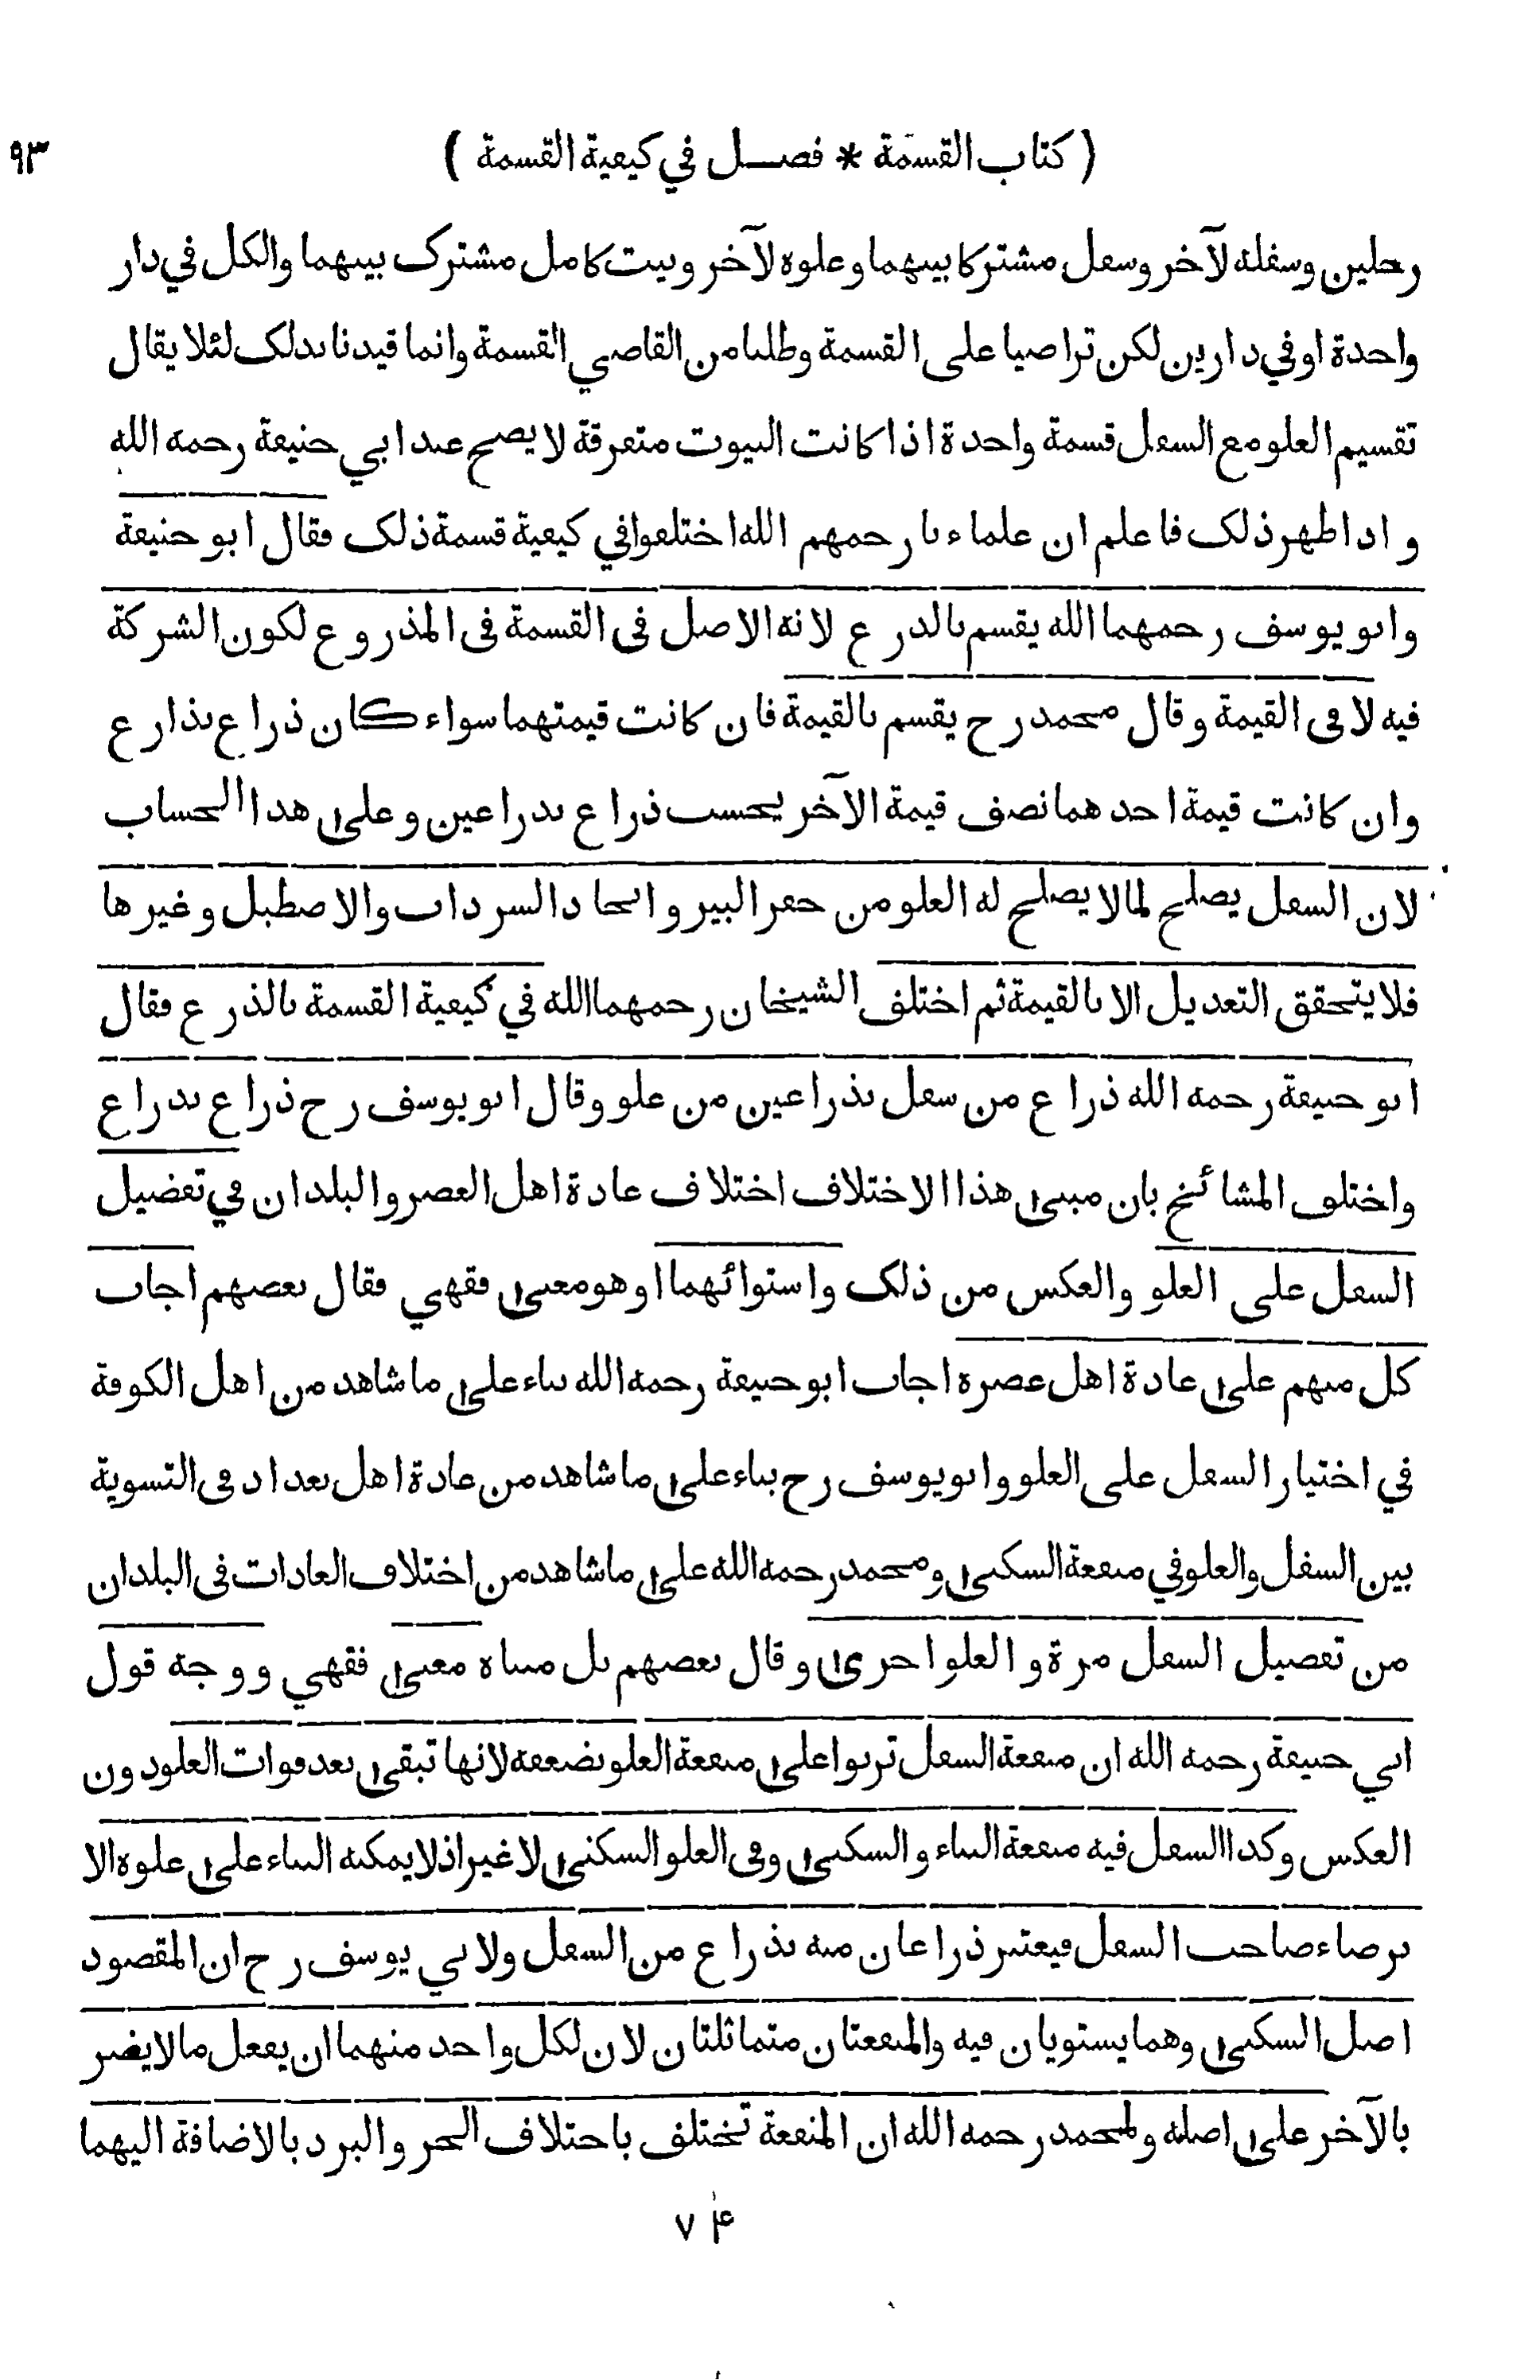 ( كتاب القسمة * فصل في كيفية القسمة ) ٩٣
رجلين وسفله لآخر وسفل مشتركا بينهما وعلوه لآخر وبيت كامل مشترك بينهما والكل في دار
واحدة او في دارين لكن تراضيا على القسمة وطلبا من القاضي القسمة وانما قيدنا بذلك لئلا يقال
تقسيم العلو مع السفل قسمة واحدة اذا كانت البيوت متفرقة لا يصح عند ابي حنيفة رحمه الله
و اذا ظهر ذلك فاعلم ان علماءنا رحمهم الله اختلفوا في كيفية قسمة ذلك فقال ابو حنيفة
وابو يوسف رحمهما الله يقسم بالذرع لانه الاصل فى القسمة فى المذروع لكون الشركة
فيه لا فى القيمة وقال محمد رح يقسم بالقيمة فان كانت قيمتهما سواء كان ذراع بذارع
وان كانت قيمة احدهما نصف قيمة الآخر يحسب ذراع بذراعين وعلى هذا الحساب
لان السفل يصلح لما لا يصلح له العلو من حفر البير واتخاذ السرداب والاصطبل وغيرها
فلا يتحقق التعديل الا بالقيمة ثم اختلف الشيخان رحمهما الله في كيفية القسمة بالذرع فقال
ابو حنيفة رحمه الله ذراع من سفل بذراعين من علو وقال ابو يوسف رح ذراع بذراع
واختلف المشائخ بان مبنى هذا الاختلاف اختلاف عادة اهل العصر والبلدان في تفضيل
السفل على العلو والعكس من ذلك واستوائهما او هو معنى فقهي فقال بعضهم اجاب
كل منهم على عادة اهل عصره اجاب ابو حنيفة رحمه الله بناء على ما شاهد من اهل الكوفة
في اختيار السفل على العلو وابو يوسف رح بناء على ما شاهد من عادة اهل بغداد فى التسوية
بين السفل والعلو في منفعة السكنى ومحمد رحمه الله على ما شاهد من اختلاف العادات فى البلدان
من تفضيل السفل مرة و العلو اخرى وقال بعضهم بل مبناه معنى فقهي ووجه قول
ابي حنيفة رحمه الله ان منفعة السفل تربوا على منفعة العلو بضعفه لانها تبقى بعد فوات العلو دون
العكس وكذا السفل فيه منفعة البناء والسكنى وفى العلو السكنى لا غير اذ لا يمكنه البناء على علوه الا
برضاء صاحب السفل فيعتبر ذراعان منه بذراع من السفل ولابي يوسف رح ان المقصود
اصل السكنى وهما يستويان فيه والمنفعتان متماثلتان لان لكل واحد منهما ان يفعل ما لا يضر
بالآخر على اصله ولمحمد رحمه الله ان المنفعة تختلف باختلاف الحر والبرد بالاضافة اليهما